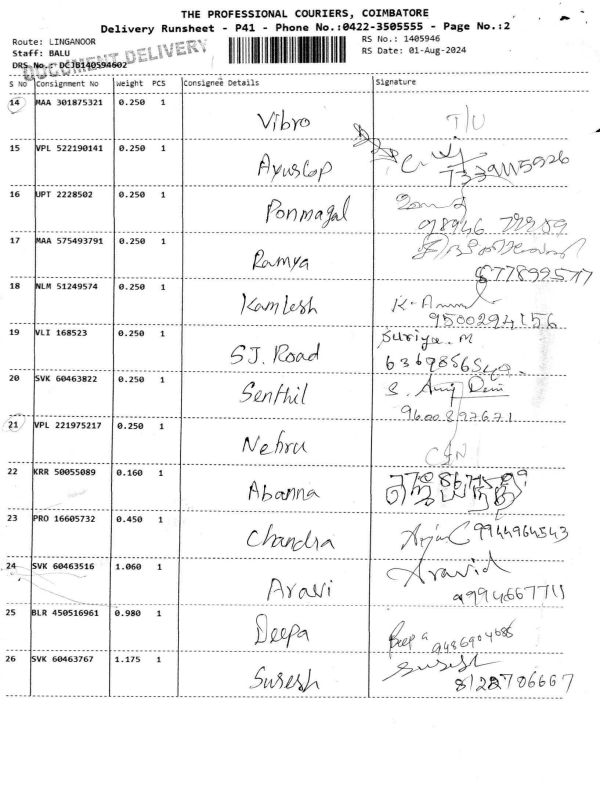 THE PROFESSIONAL COURIERS, COIMBATORE
Delivery Runsheet - P41 - Phone No.:0422-3505555 - Page No.:2
Route: LINGANOOR RS No.: 1405946
Staff: BALU RS Date: 01-Aug-2024
DRS No.: DCJB140594602
DOCUMENT DELIVERY
S No Consignment No Weight PCS Consignee Details Signature
14 MAA 301875321 0.250 1
Vibro
15 VPL 522190141 0.250 1
Ayuscop 7339115926
16 UPT 2228502 0.250 1
Ponmagal
17 MAA 575493791 0.250 1
Ramya
18 NLM 51249574 0.250 1
Kamlesh 9500294156
19 VLI 168523 0.250 1 Suriya. M
SJ. Road
20 SVK 60463822 0.250 1
Senthil 9600897671
21 VPL 221975217 0.250 1
Nehru
22 KRR 50055089 0.160 1
Abanna
23 PRO 16605732 0.450 1
Chandra 9944964543
24 SVK 60463516 1.060 1 Aravid
Aravi 9994667711
25 BLR 450516961 0.980 1
Deepa Deepa 9486904686
26 SVK 60463767 1.175 1 Suresh
Suresh 8122786667